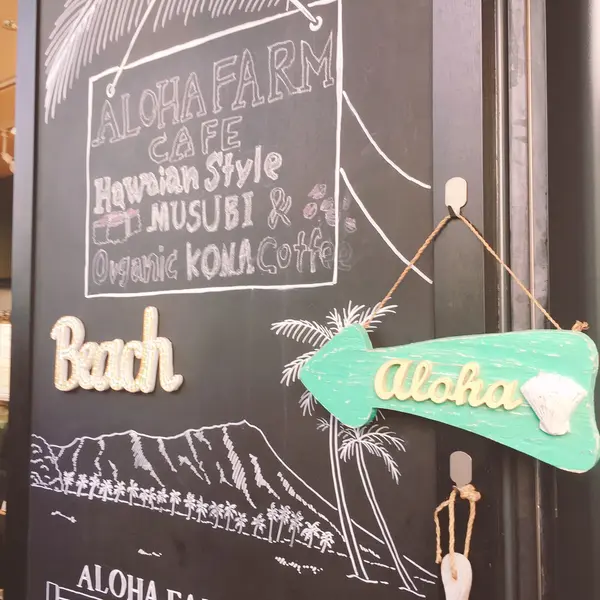 ALOHA FARM
CAFE
Hawaiian Style
MUSUBI &
Organic KONA Coffee
Beach
Aloha
ALOHA FARM